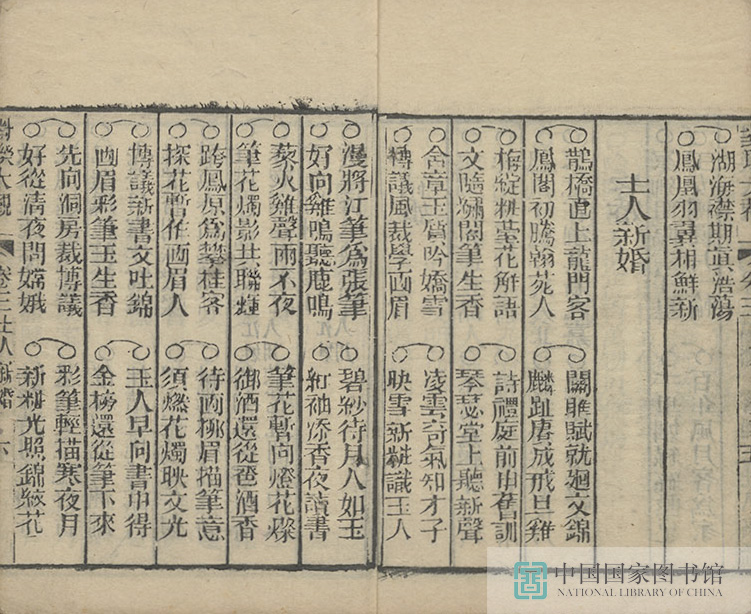 湖海襟期真浩蕩
鳳凰羽翼相鮮新
士人新婚
鵲橋直上龍門客
鳳閣初騰翰苑人
關雎賦就廻文錦
麟趾賡成戒旦雞
梅綻粧臺花解語
文隨繡閣筆生香
詩禮庭前申舊訓
琴瑟堂上聽新聲
含章玉質吟嬌雪
博議風裁學画眉
凌雲奇氣知才子
映雪新粧識玉人
漫將江筆為張筆
好向雞鳴聽鹿鳴
碧紗待月人如玉
紅袖添香夜讀書
藜火雞聲雨不夜
筆花燭影共聯輝
筆花暫向燈花燦
御酒還從巹酒香
跨鳳原為攀桂客
探花暫作画眉人
待画桃眉描筆意
須燃花燭映文光
博議新書文吐錦
画眉彩筆玉生香
玉人早向書中得
金榜還從筆下來
先向洞房裁博議
好從清夜問嫦娥
彩筆輕描寒夜月
新粧光照錦綾花
大觀 卷三 士人新婚 六
中国国家图书馆
NATIONAL LIBRARY OF CHINA